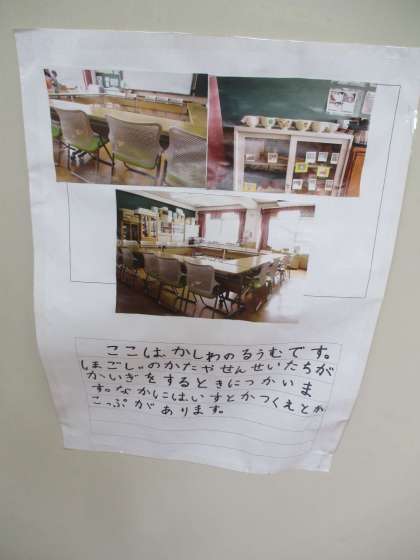 ここは、かしわのるうむです。
しまごじぃのかたやせんせいたちが
かいぎをするときにつかいま
す。なかにはいすとかつくえとか
こっぷがあります。